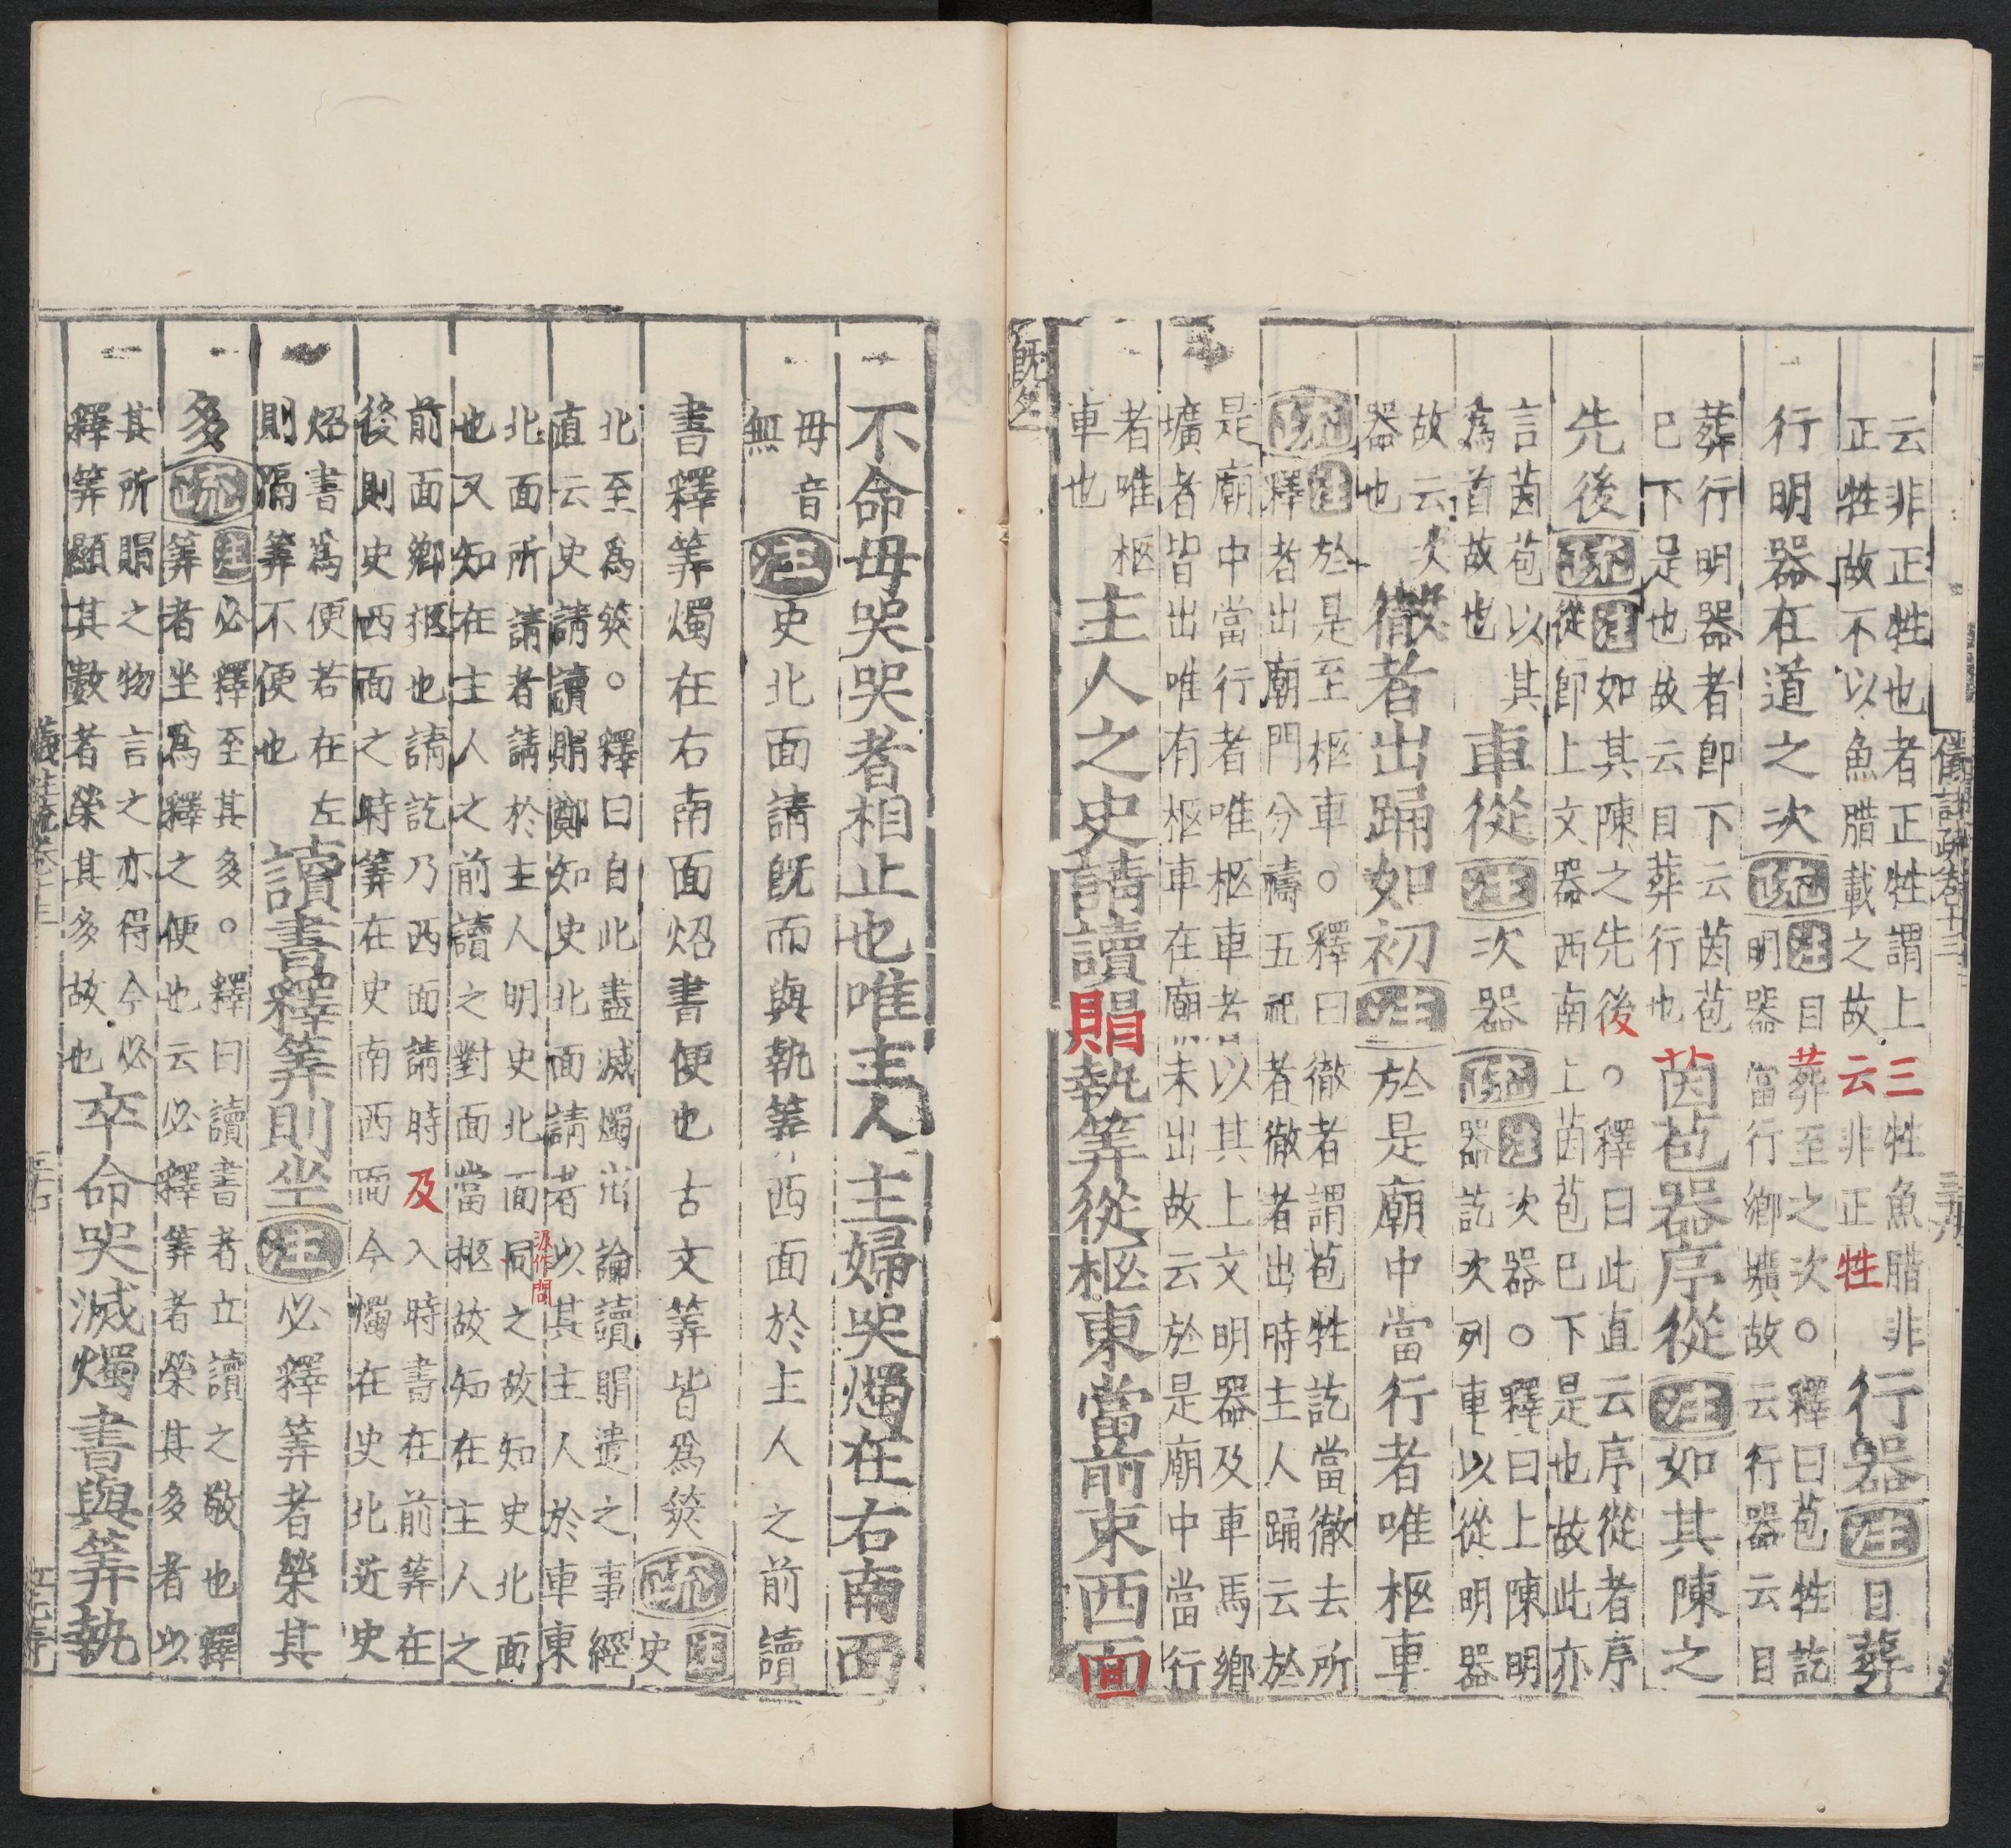 儀禮註疏卷十三
云非正牲也者正牲謂上三牲魚腊非
正牲故不以魚腊載之故云非正牲
行器注目葬
行明器在道之次疏
注目葬至之次○釋曰苞牲訖
明器當行鄉壙故云行器云目
葬行明器者即下云茵苞
已下是也故云目葬行也
茵苞器序從注如其陳之
先後疏
注如其陳之先後○釋曰此直云序從者序
從即上文器西南上茵苞已下是也故此亦
言茵苞以其
為首故也
車從注次器疏
注次器○釋曰上陳明
器訖次列車以從明器
故云次
器也
徹者出踊如初注於是廟中當行者唯柩車
疏
注於是至柩車○釋曰徹者謂苞牲訖當徹去所
釋者出廟門分禱五祀者徹者出時主人踊云於
是廟中當行者唯柩車者以其上文明器及車馬鄉
壙者皆出唯有柩車在廟未出故云於是廟中當行
者唯柩
車也
主人之史請讀賵執筭從柩東當前束西面
既夕
不命毋哭哭者相止也唯主人主婦哭燭在右南面
毋音
無
注史北面請既而與執筭西面於主人之前讀
書釋筭燭在右南面炤書便也古文筭皆為筴疏
注
史
北至為筴○釋曰自此盡滅燭出論讀賵遣之事經
直云史請讀賵鄭知史北面請者以其主人於車東
北面所請者請於主人明史北面同之故知史北面
也又知在主人之前讀之對面當柩故知在主人之
作問
前面鄉柩也請訖乃西面請時及入時書在前筭在
後則史西面之時筭在史南西面今燭在史北近史
炤書為便若在左
則隔筭不便也
讀書釋筭則坐注必釋筭者榮其
多疏
注必釋至其多○釋曰讀書者立讀之敬也釋
筭者坐為釋之便也云必釋筭者榮其多者以
其所賵之物言之亦得今必
釋筭顯其數者榮其多故也
卒命哭滅燭書與筭執